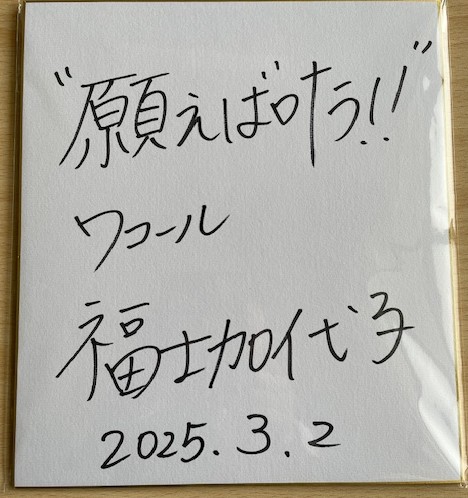 “願えば叶う!!”
ワコール
福士加代子
2025.3.2